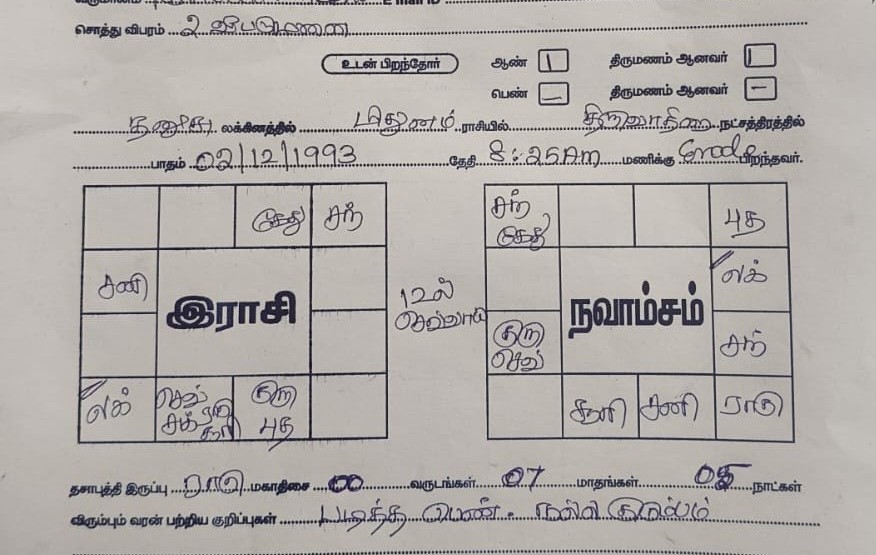 சொத்து விபரம் ... 2
உடன் பிறந்தோர் ஆண் 1 திருமணம் ஆனவர் 1
பெண் – திருமணம் ஆனவர் –
தனுசு லக்கினத்தில் மிதுனம் ராசியில் திருவாதிரை நட்சத்திரத்தில்
பாதம் 02/12/1993 தேதி 8:25Am மணிக்கு பிறந்தவர்.
கேது சந் சந் கேது புத
சனி லக்
இராசி 12ல் செவ்வாய் நவாம்சம்
குரு செவ் சந்
லக் செவ் சுக் ராகு சூரி குரு புத சூரி சனி ராகு
தசாபுத்தி இருப்பு ராகு மகாதிசை 00 வருடங்கள் 07 மாதங்கள் நாட்கள்
விரும்பும் வரன் பற்றிய குறிப்புகள் படித்த பெண். நல்ல குடும்பம்